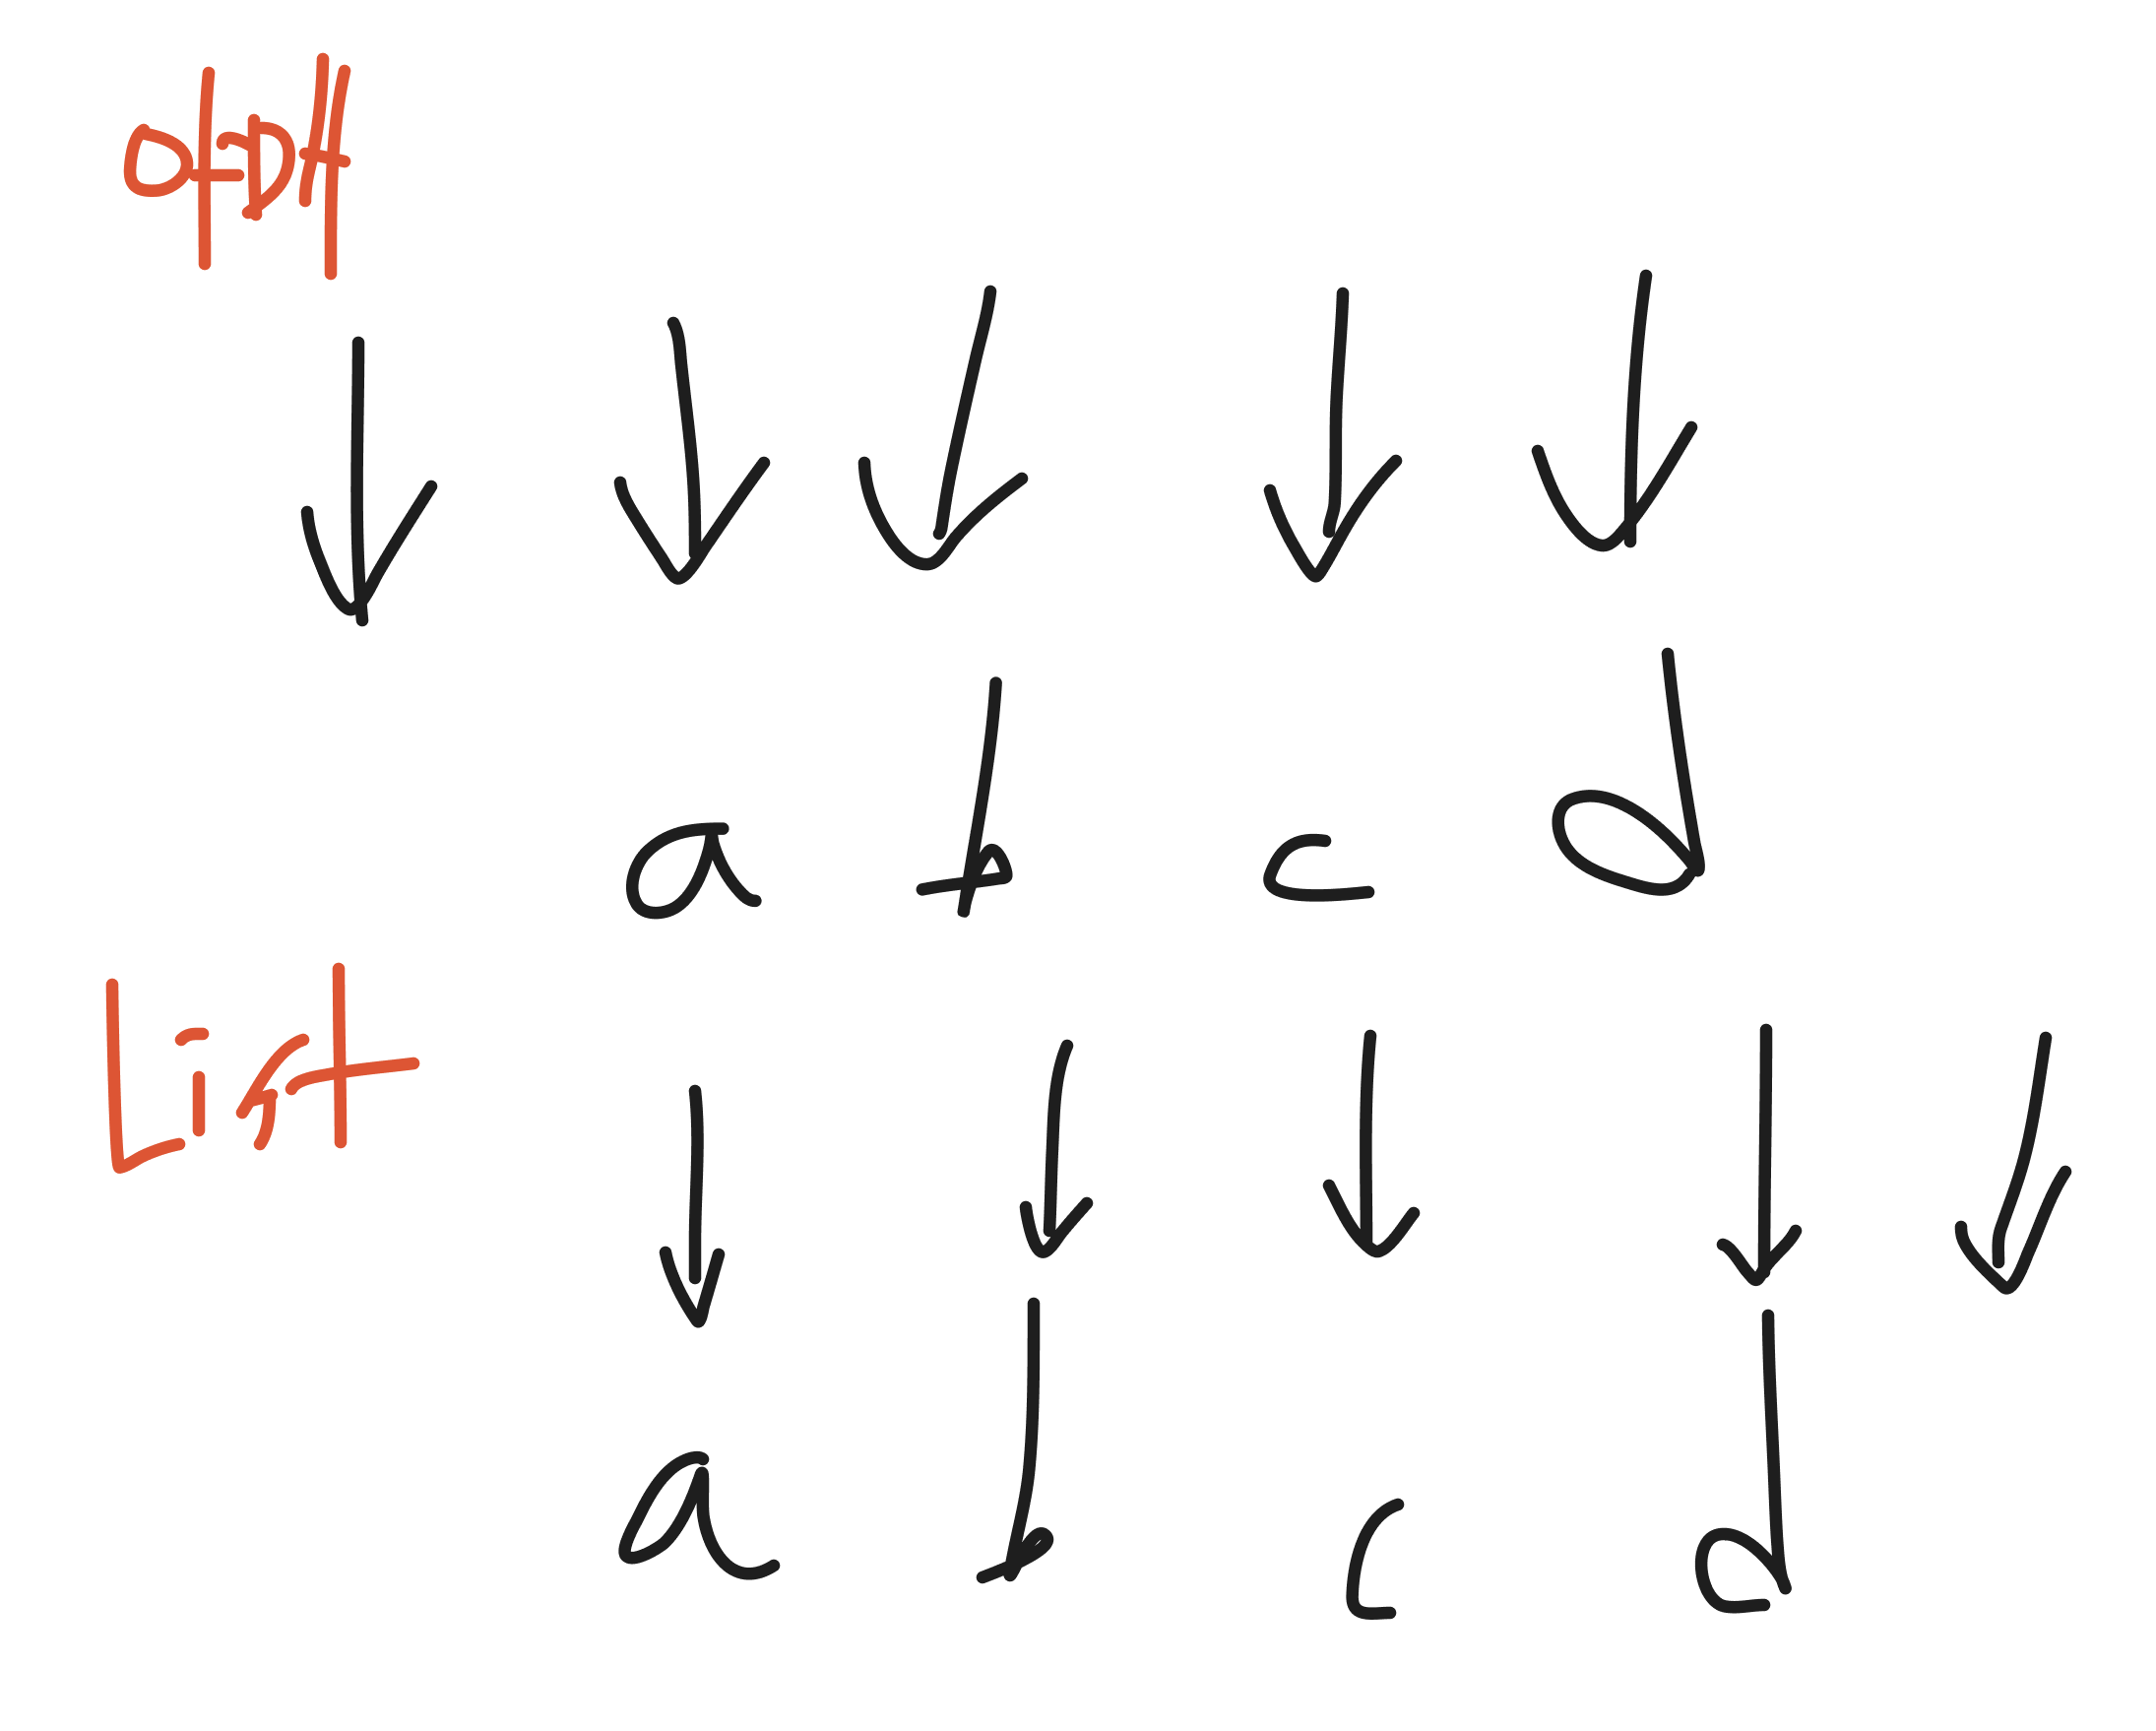 a b c d
List
a b c d